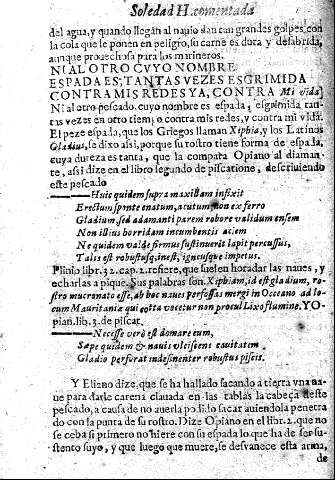 Soledad II. comentada
del agua, y quando llegan al nauio dan tan grandes golpes con
la cola que le ponen en peligro, su carne es dura y desabrida,
aunque prouechosa para los marineros.
NI AL OTRO CUYO NOMBRE
ESPADA ES, TANTAS VEZES ESGRIMIDA
CONTRA MIS REDES YA, CONTRA Mi vida)
Ni al otro pescado, cuyo nombre es espada, esgrimida tan-
tas vezes en otro tiempo contra mis redes, y contra mi vida.
El peze espada, que los Griegos llaman Xiphia, y los Latinos
Gladius, se dixo assi, porque su rostro tiene forma de espada,
cuya dureza es tanta, que la compara Opiano al diaman-
te, assi dize en el libro segundo de piscatione, descriuiendo
este pescado
Huic quidem supra maxillam infixit
Erectum sponte enatum, acutum non ex ferro
Gladium, sed adamanti parem robore validum ensem
Non illius horridam incumbentis aciem
Ne quidem valde firmus sustinuerit lapit percussus,
Talis est robustusq; inest, ignitusque impetus.
Plinio libr. 32. cap. 2. refiere, que suelen horadar las naues, y
echarlas a pique. Sus palabras son. Xiphiam, id est gladium, ro-
stro mucronato esse, ab hoc naues perfossas mergi in Oceano ad lo-
cum Mauritaniæ qui cotta vocetur non procul Lixo flumine. Y O-
pian. lib. 3. de piscat.
Necesse verò est domare eum,
Sæpe quidem & nauis vlciscens cauitatem
Gladio perforat indesinenter robustus piscis.
Y Eliano dize, que se ha hallado sacando a tierra vna na-
ue para darle carena clauada en las tablas la cabeça deste
pescado, a causa de no auerla podido sacar auiendola penetra-
do con la punta de su rostro. Dize Opiano en el libr. 2. que no
se ceba si primero no hiere con su espada lo que ha de ser su-
stento suyo, y que luego que muere, se desvanece esta arma,
de